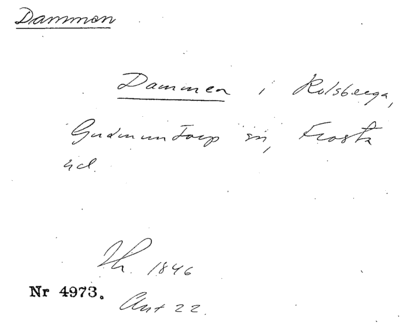 Dammon
Dammen i Rolsberga,
Gudmuntorp sn, Frosta
hd.
Th. 1846
Nr 4973.
Ant 22.